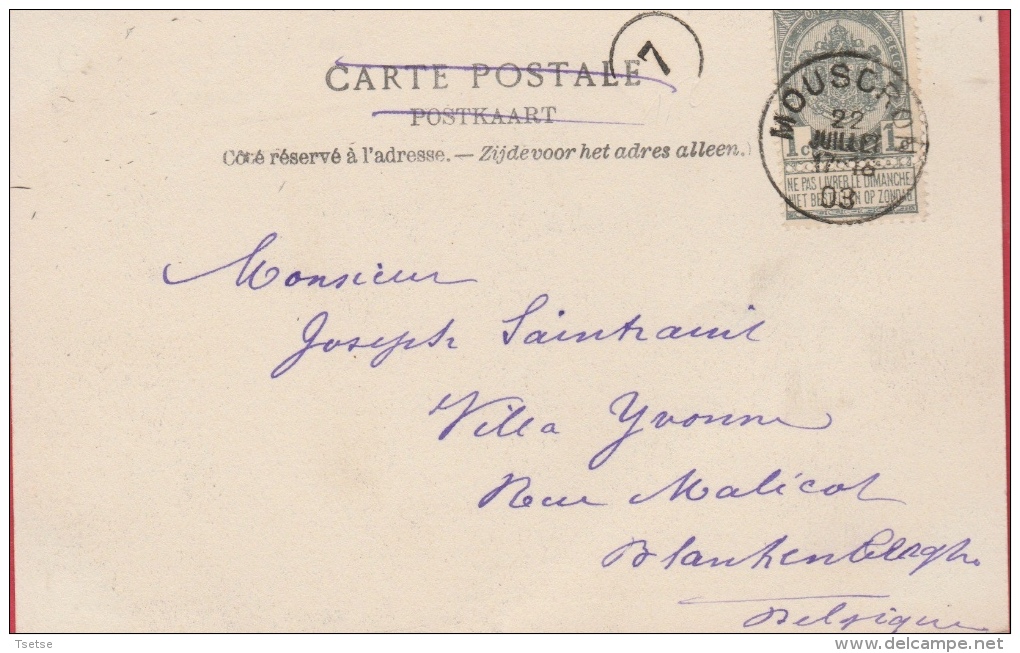 CARTE POSTALE
7
POSTKAART
Côté réservé à l'adresse. — Zijde voor het adres alleen.
MOUSCRON
22
JUILLET
17-18
03
1c 1c
NE PAS LIVRER LE DIMANCHE
NIET BESTELLEN OP ZONDAG
Monsieur
Joseph Saintraint
Villa Yvonne
Rue Malicot
Blankenberghe
Belgique
Tsetse
delcampe.net